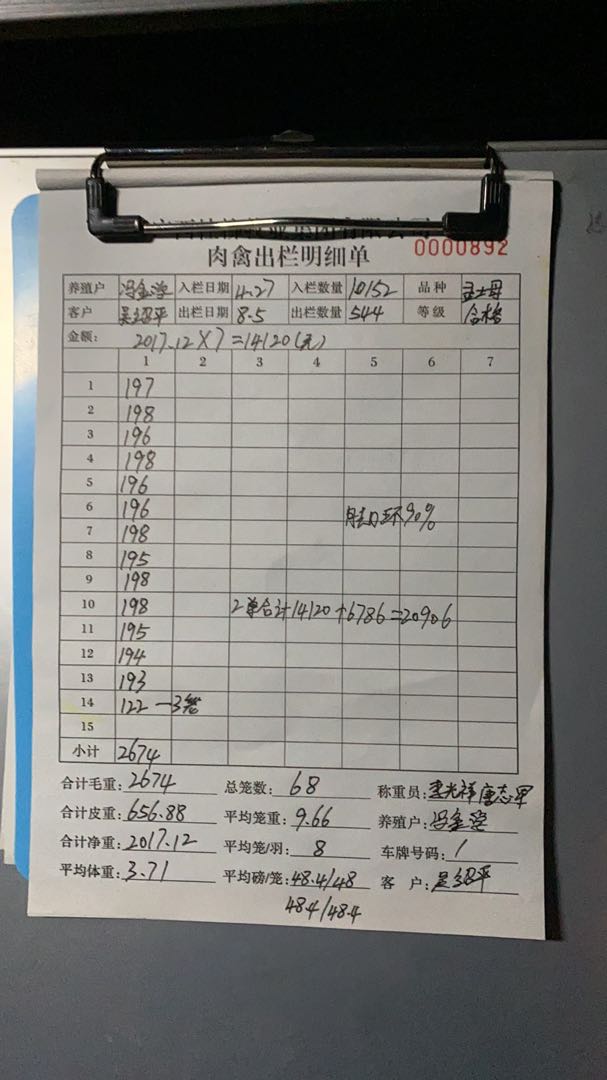 肉禽出栏明细单
0000892
养殖户 冯金学 入栏日期 4.27 入栏数量 10152 品种
客户 吴绍平 出栏日期 8.5 出栏数量 544 等级 合格
金额: 2017.12×7=14120(元)
1 2 3 4 5 6 7
1 197
2 198
3 196
4 198
5 196
6 196
环90%
7 198
8 195
9 198
10 198 2单合计14120+6786=20906
11 195
12 194
13 193
14 122 —3笼
15
小计 2674
合计毛重: 2674 总笼数: 68 称重员: 李光祥
合计皮重: 656.88 平均笼重: 9.66 养殖户: 冯金学
合计净重: 2017.12 平均笼/羽: 8 车牌号码: /
平均体重: 3.71 平均磅/笼: 48.4/48 客 户: 吴绍平
48.4/48.4